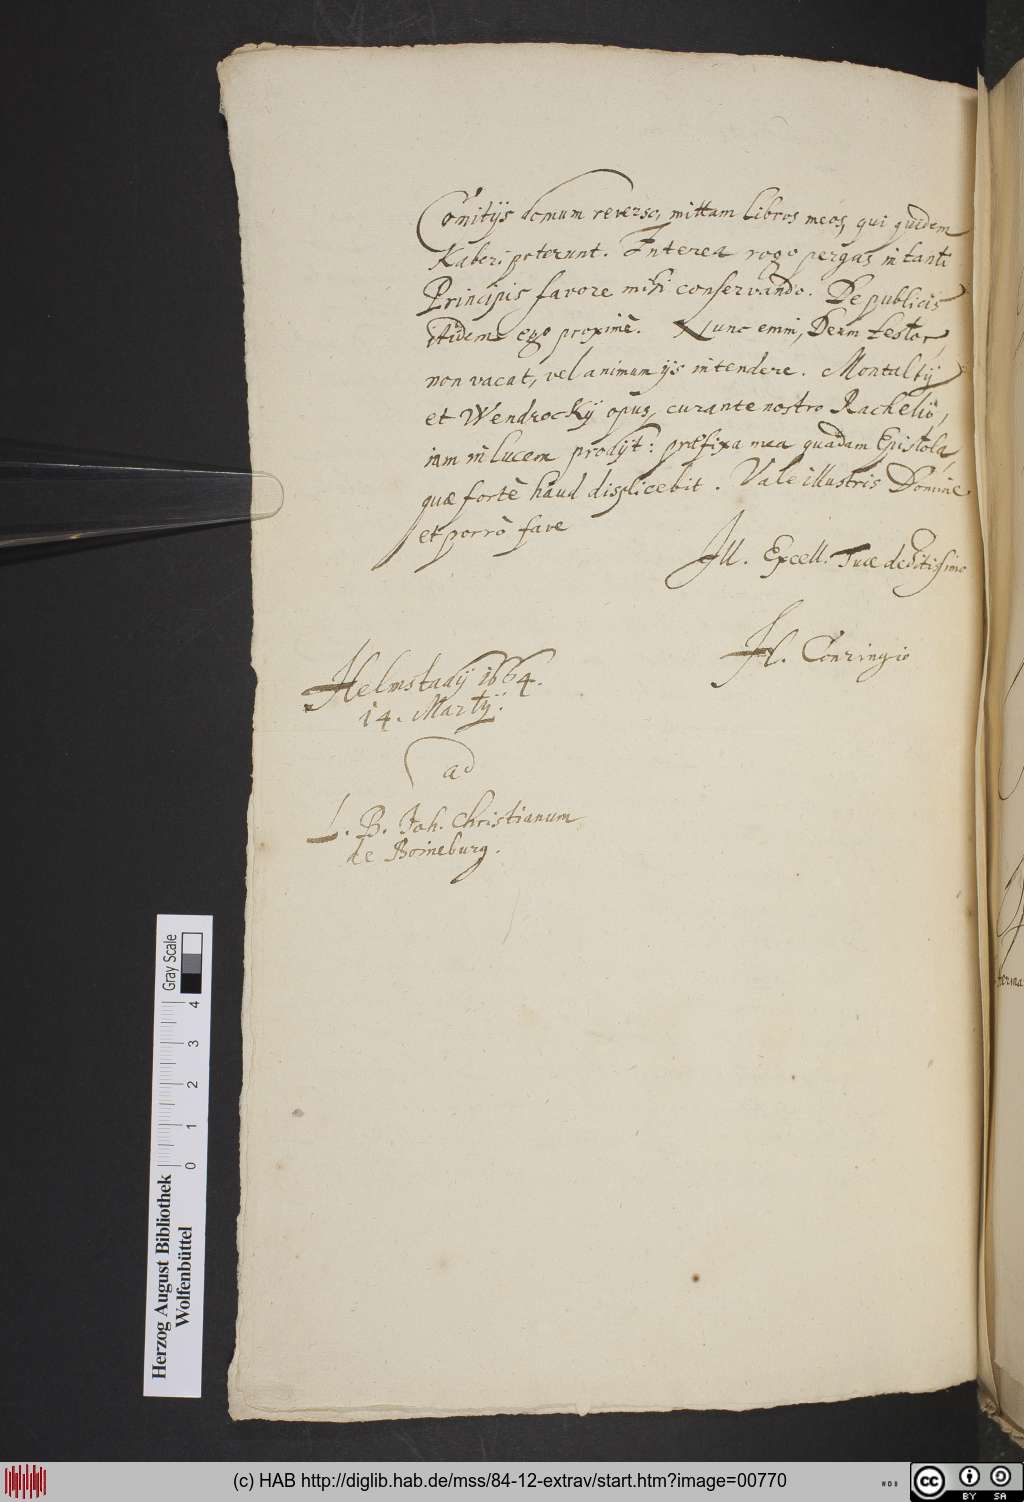 Comitijs domum reverso, mittam libros meos, qui quidem
haberi poterunt. Interea rogo pergas in tanti
Principis favore mihi conservando. De publicis
itidem ego proximè. Nunc enim, Deum testor,
non vacat, vel animum ijs intendere. Montaltij
et Wendrockij opus, curante nostro Rachelio,
iam in lucem prodijt: præfixa mea quadam Epistola,
quæ fortè haud displicebit. Vale illustris Domine
et porrò fave
Ill. Excell. Tuæ deditissimo
H. Conringio
Helmstadij 1664.
14. Martij.
ad
L. B. Joh. Christianum
de Boineburg.
Herzog August Bibliothek
Wolfenbüttel
0 1 2 3 4
Gray Scale
(c) HAB http://diglib.hab.de/mss/84-12-extrav/start.htm?image=00770
cc BY SA